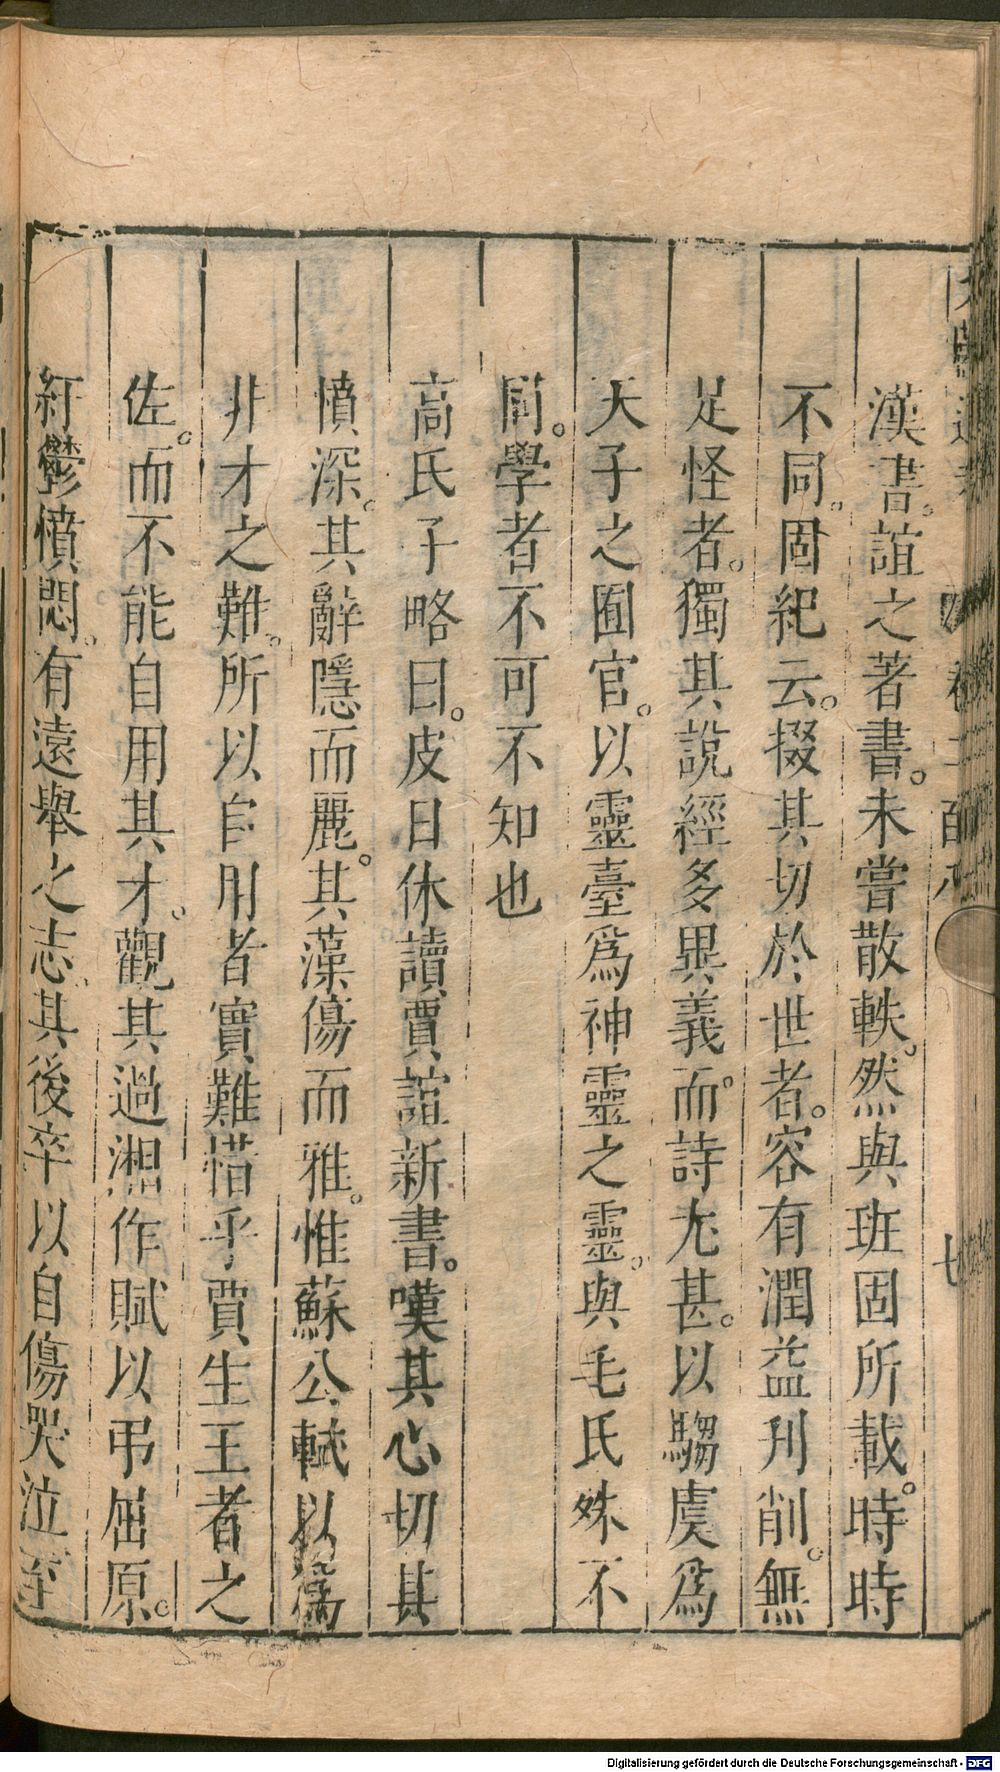 漢書。誼之著書。未嘗散軼。然與班固所載。時時
不同。固紀云。掇其切於世者。容有潤益刋削。無
足怪者。獨其說經多異義。而詩尤甚。以騶虞爲
天子之囿官。以靈臺爲神靈之靈。與毛氏殊不
同。學者不可不知也
高氏子略曰。皮日休讀賈誼新書。嘆其心切其
憤深。其辭隱而麗。其藻傷而雅。惟蘇公軾以爲
非才之難。所以自用者實難惜乎賈生王者之
佐。而不能自用其才。觀其過湘作賦以弔屈原。
紆鬱憤悶。有遠舉之志。其後卒以自傷哭泣至
Digitalisierung gefördert durch die Deutsche Forschungsgemeinschaft - DFG